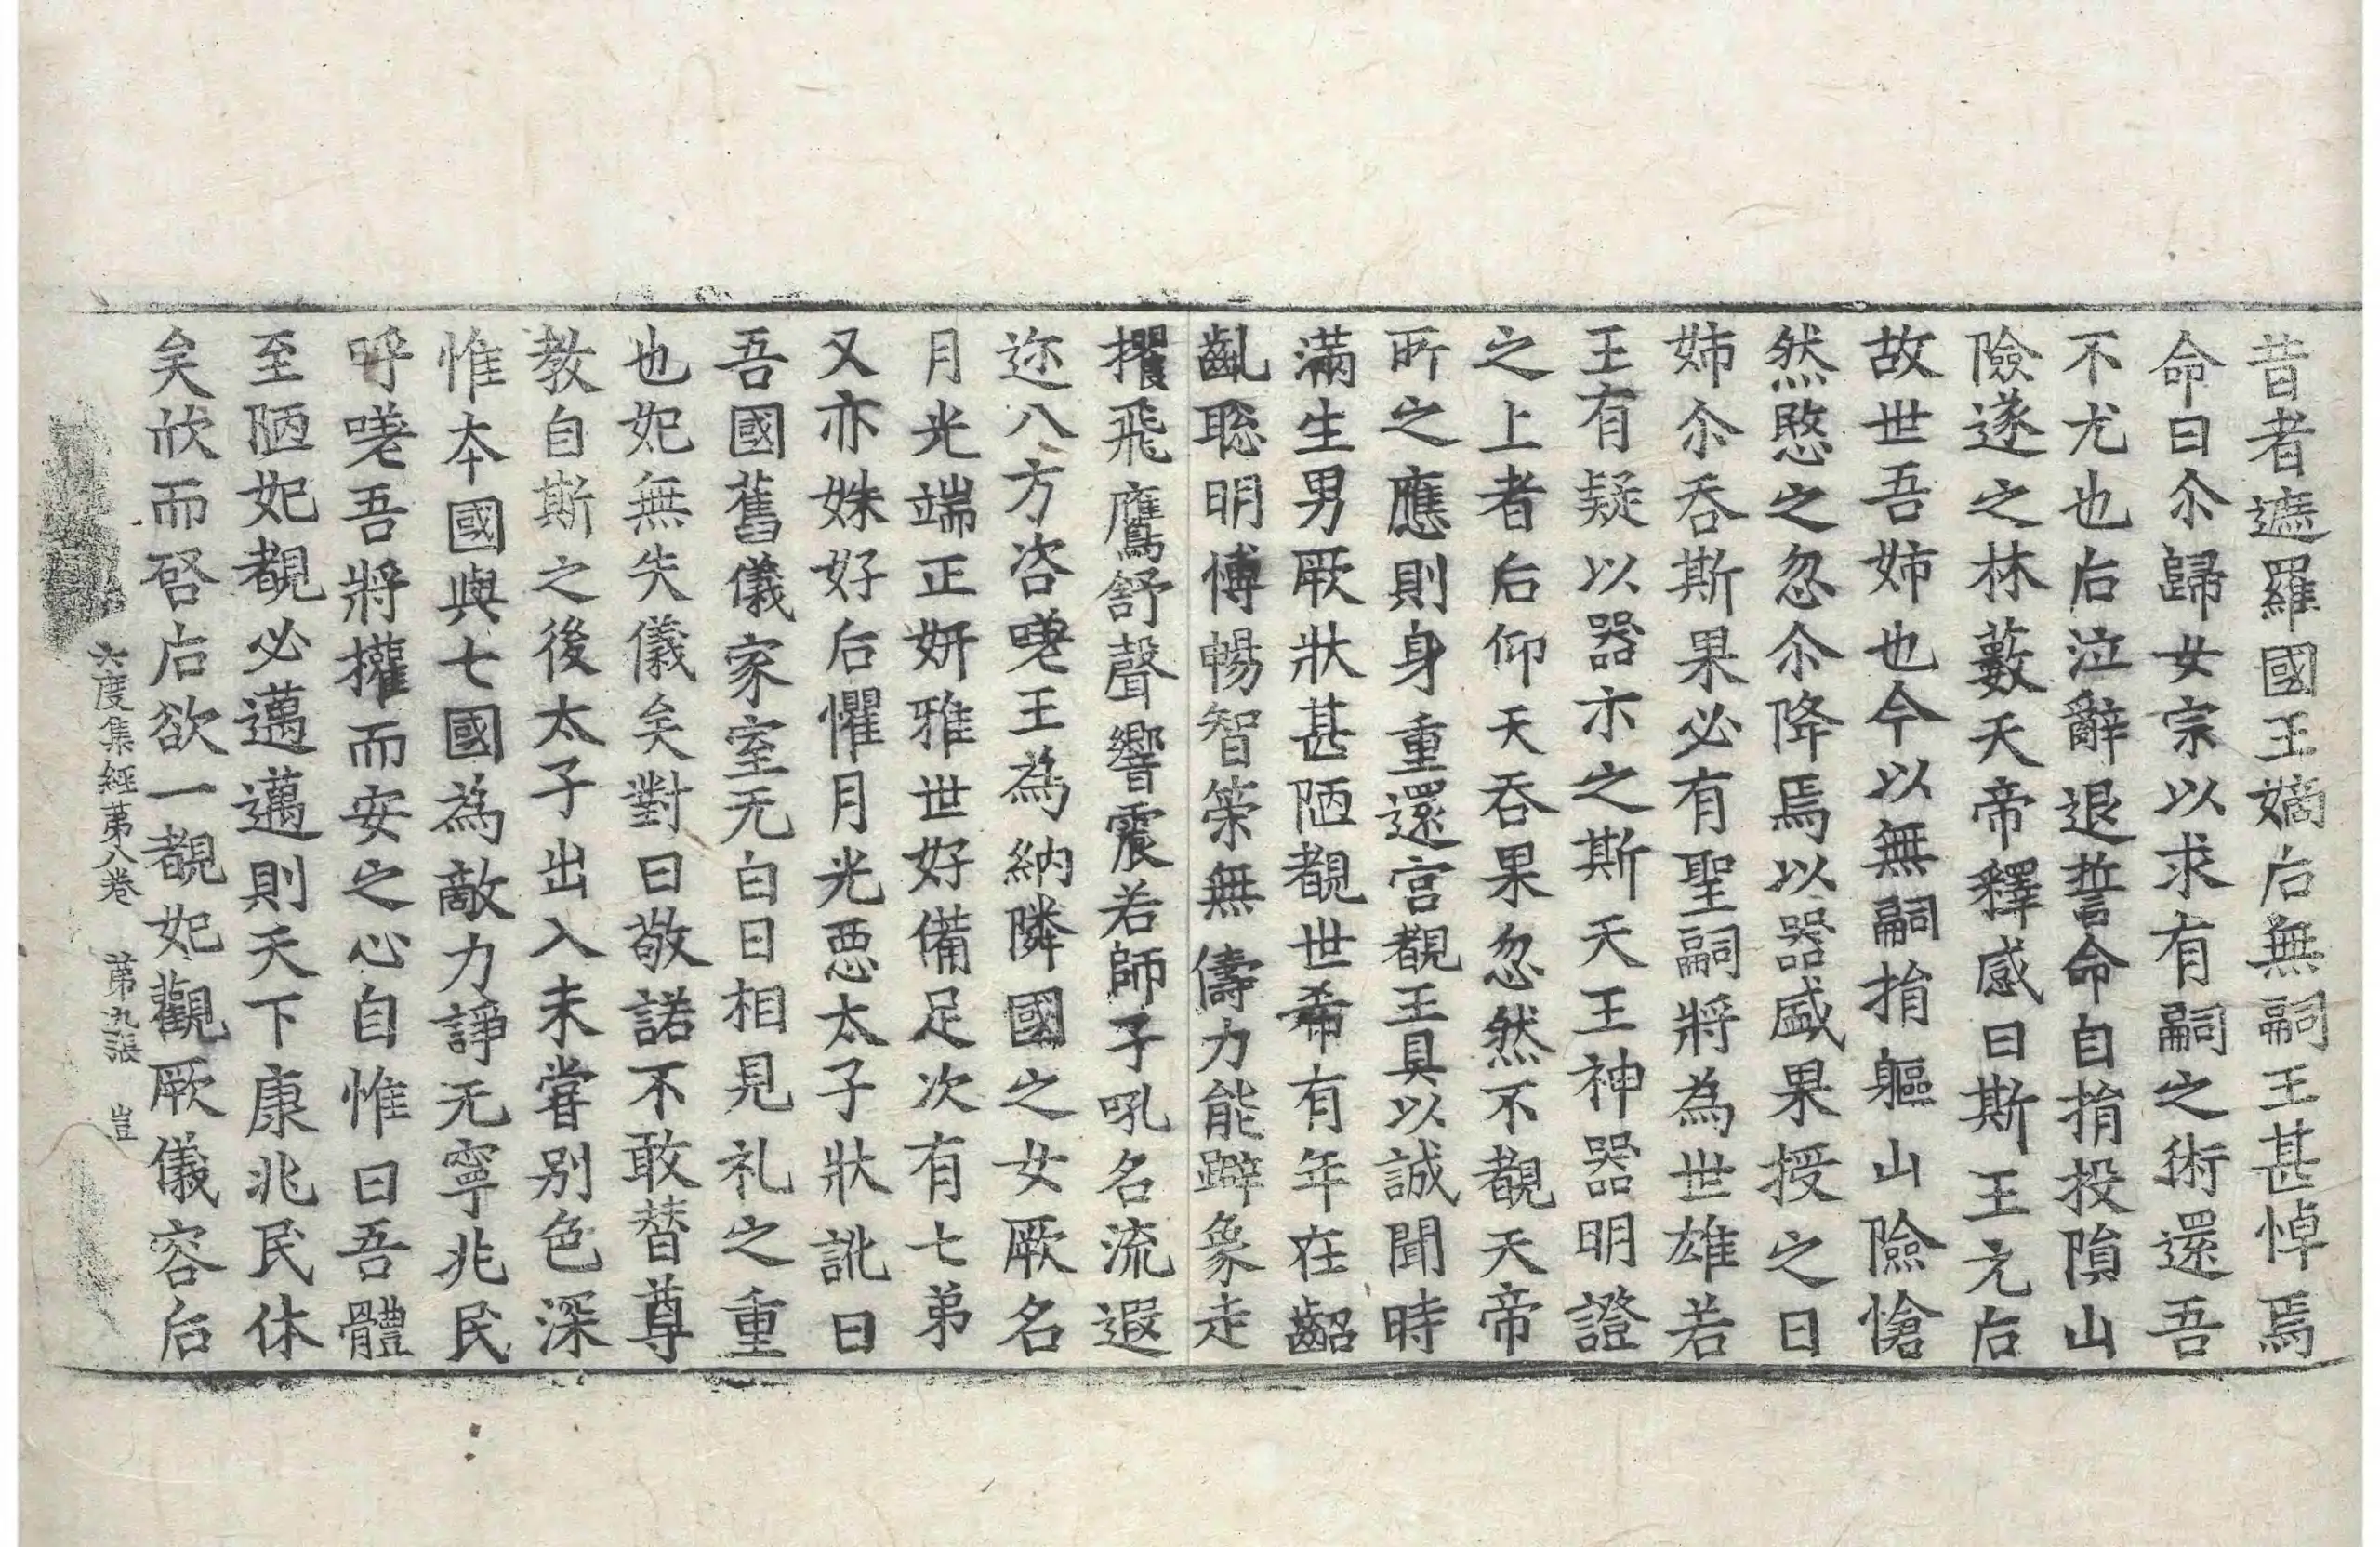 昔者遮羅國王嫡后無嗣王甚悼焉
命曰尒歸女宗以求有嗣之術還吾
不尤也后泣辭退誓命自捐投隕山
險遂之林藪天帝釋感曰斯王元后
故世吾姉也今以無嗣捐軀山險愴
然愍之忽尒降焉以器盛果授之曰
姉尒吞斯果必有聖嗣將為世雄若
王有疑以器示之斯天王神器明證
之上者后仰天吞果忽然不覩天帝
所之應則身重還宮覩王具以誠聞時
滿生男厥狀甚陋覩世希有年在齠
齓聡明博暢智策無儔力能躃象走
攫飛鷹舒聲響震若師子吼名流遐
迩八方咨嗟王為納隣國之女厥名
月光端正妍雅世好備足次有七弟
又亦姝好后懼月光惡太子狀訛曰
吾國舊儀家室无白日相見礼之重
也妃無失儀矣對曰敬諾不敢替尊
教自斯之後太子出入未甞別色深
惟本國與七國為敵力諍无寧兆民
呼嗟吾將權而安之心自惟曰吾體
至陋妃覩必邁邁則天下康兆民休
矣欣而啓后欲一覩妃觀厥儀容后
六度集經苐八巻　苐九張　豈